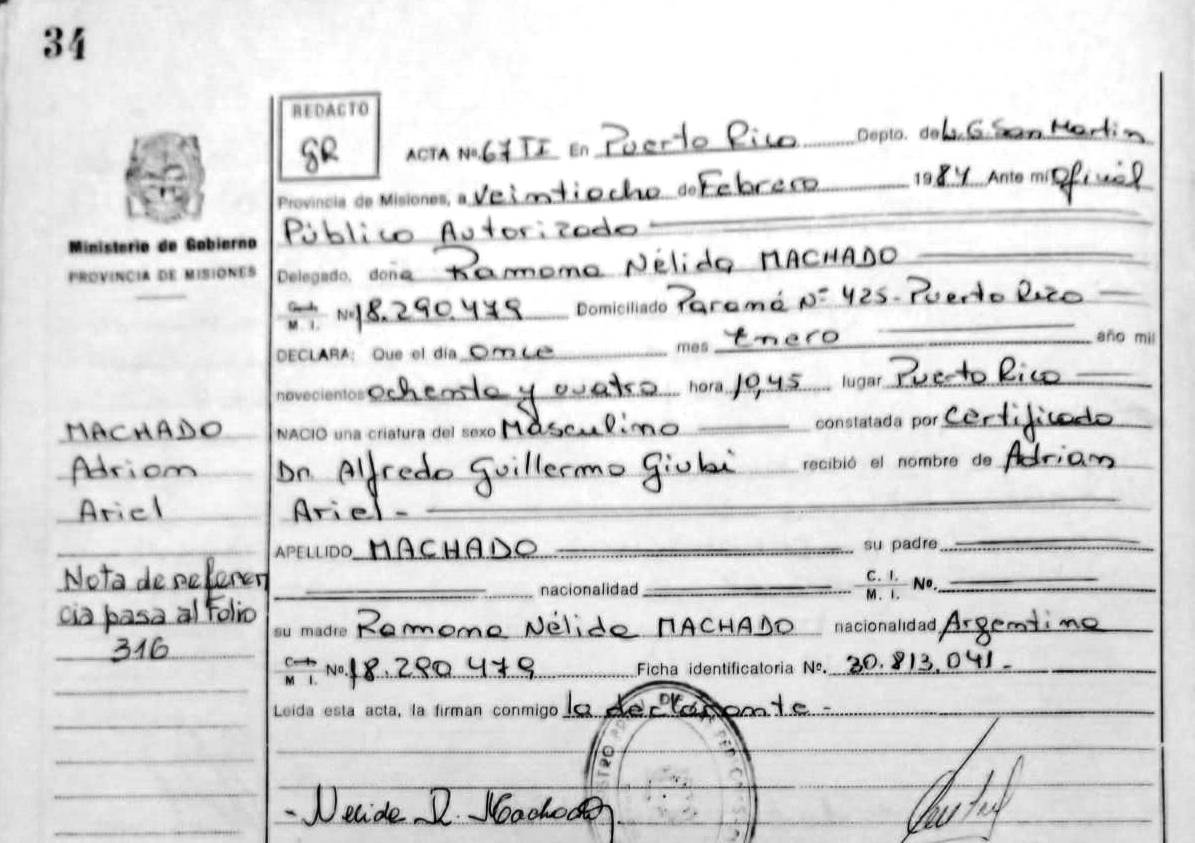 34
REDACTO
gR
ACTA No. 67 II En Puerto Rico Depto. de L. G. San Martin
Provincia de Misiones, a Veintiocho de Febrero 1984 Ante mi Oficial
Público Autorizado
Ministerio de Gobierno
PROVINCIA DE MISIONES
Delegado, doña Ramona Nélida MACHADO
M. I. No 18.290.479 Domiciliado Paraná Nº 425 - Puerto Rico
DECLARA: Que el día once mes Enero año mil
novecientos ochenta y cuatro hora 10,45 lugar Puerto Rico
NACIO una criatura del sexo Masculino constatada por Certificado
Dr. Alfredo Guillermo Giubi recibió el nombre de Adrian
Ariel -
MACHADO
Adrian
Ariel
APELLIDO MACHADO su padre
nacionalidad C. I. M. I. No.
Nota de referen
cia pasa al Folio
316
su madre Ramona Nélida MACHADO nacionalidad Argentina
M I. No. 18.290.479 Ficha identificatoria No. 30.813.041 -
Leída esta acta, la firman conmigo la declarante -
- Nelida R. Machado